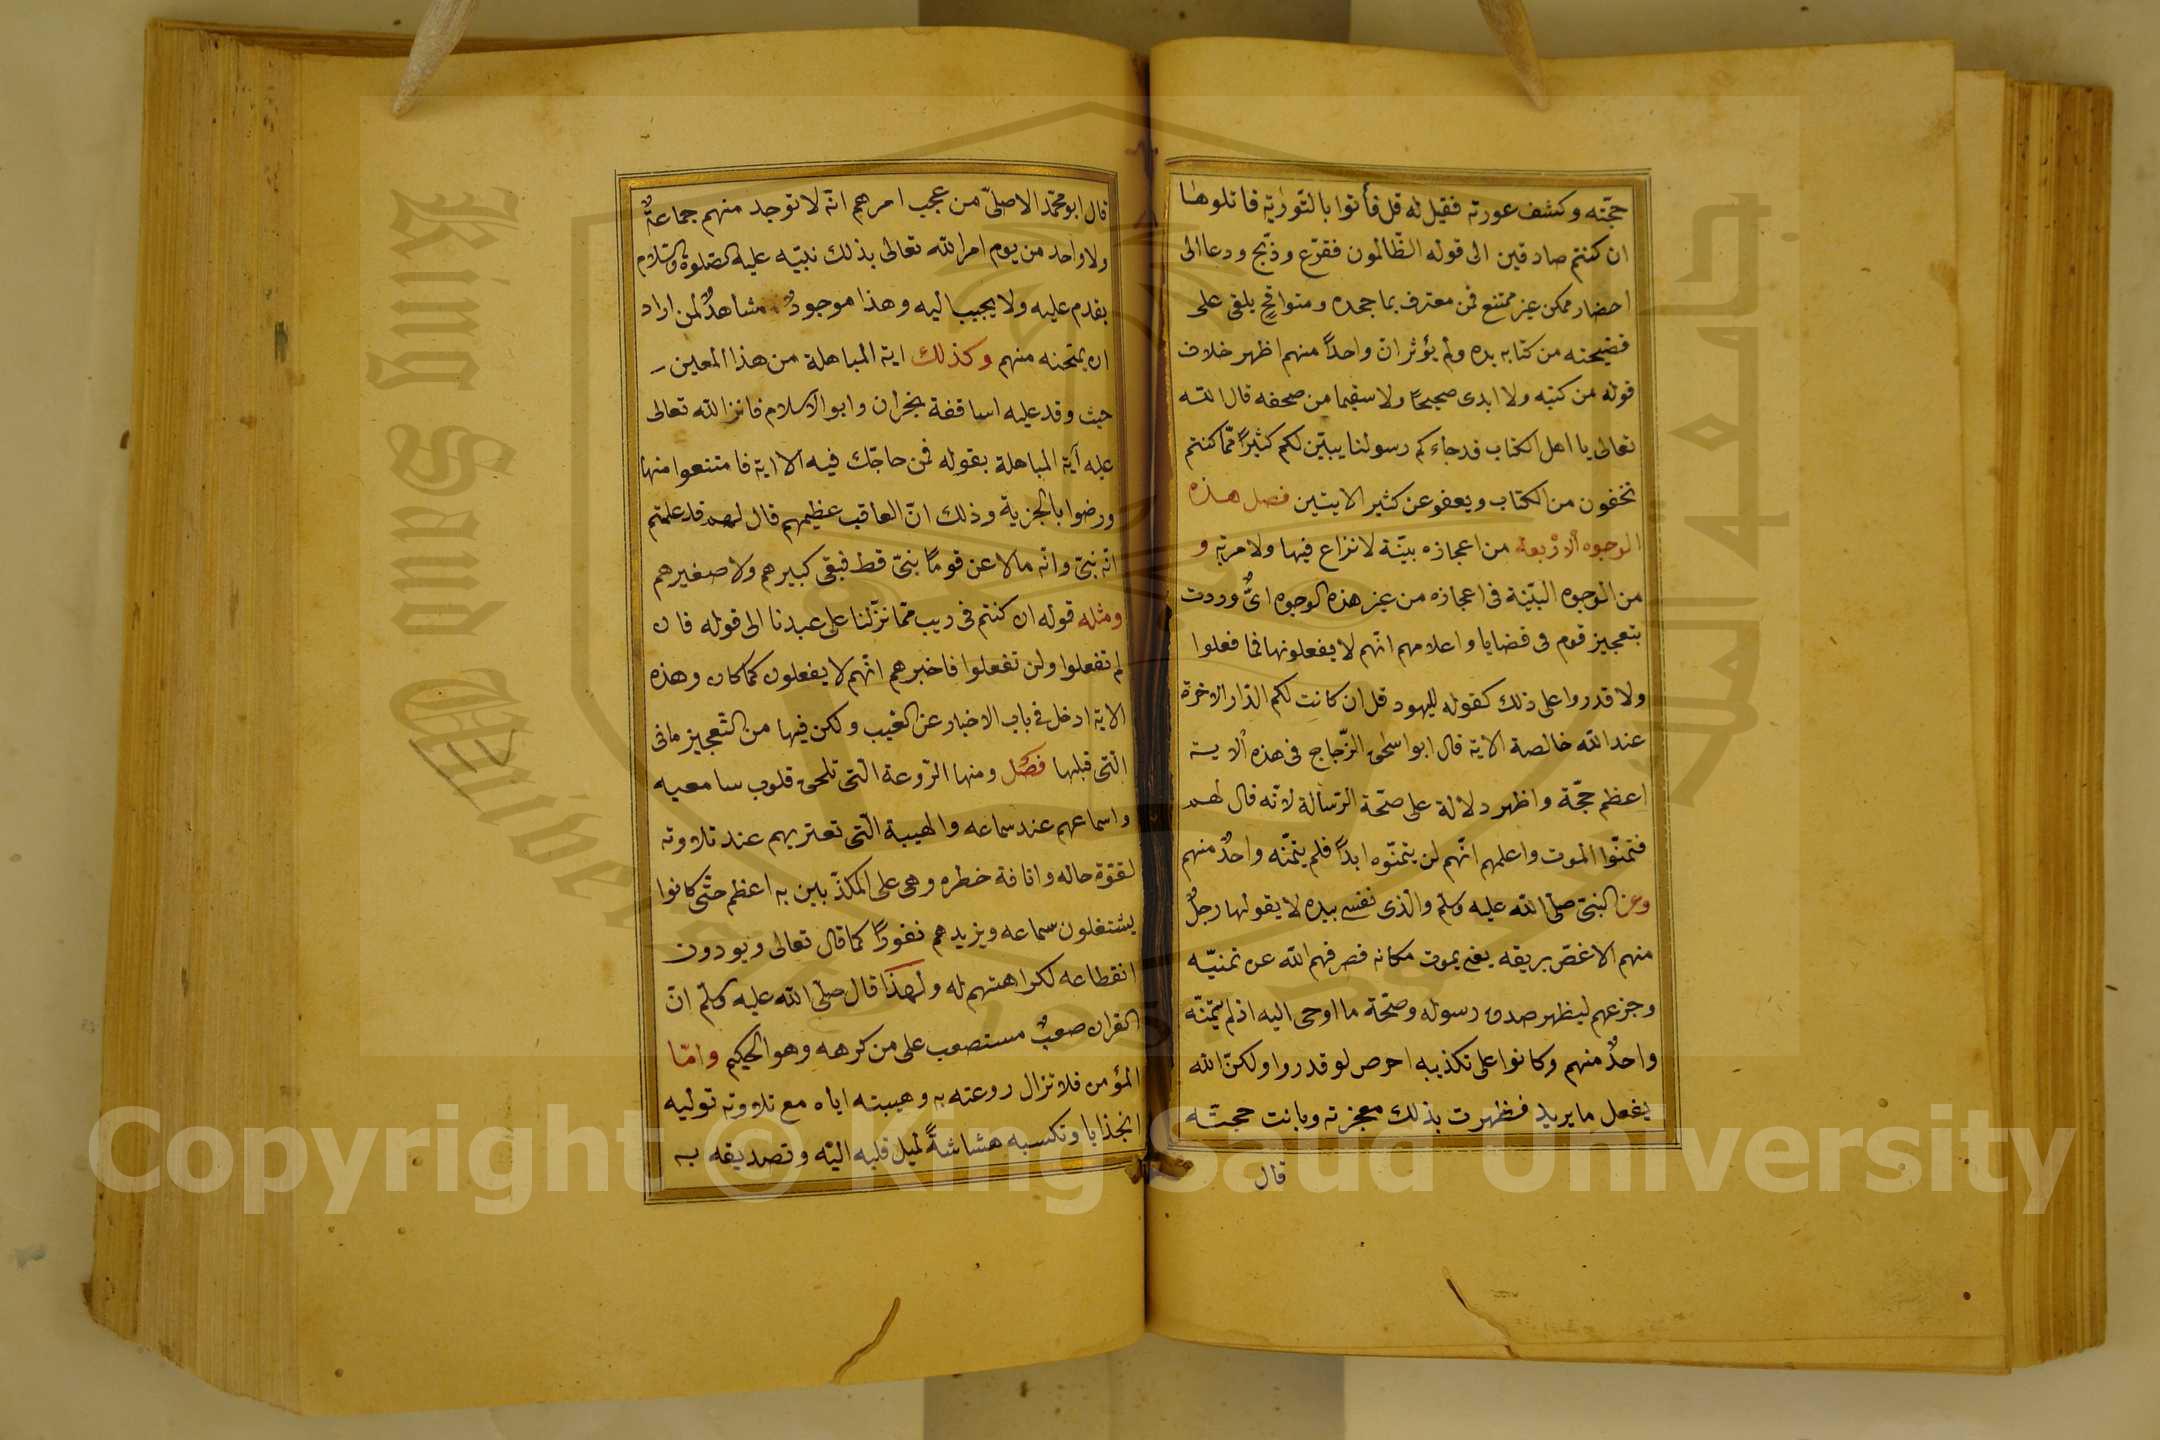 حجّته وكشف عورته فقيل له قل فأتوا بالتّوريٰة فاتلوها
ان كنتم صادقين الى قوله الظّالمون فقرّع وذبّح ودعا الى
احضار ممكن غير ممتنع فمن معترف بما جحده ومتواقح يلقى على
فضيحته من كتابه يده ولم يؤثر انّ واحداً منهم اظهر خلاف
قوله من كتبه ولا ابدى صحيحًا ولا سقيما من صحفه قال الله
تعالى يا اهل الكتاب قد جاءكم رسولنا يبيّن لكم كثيراً ممّا كنتم
تخفون من الكتاب ويعفو عن كثير الايتين فصل هذه
الوجوه الاربعة من اعجازه بيّنة لانزاع فيها ولامرية و
من الوجوه البيّنة فى اعجازه من غير هذه الوجوه اىٌ وردت
بتعجيز قوم فى قضايا واعلامهم انّهم لايفعلونها فما فعلوا
ولا قدروا على ذلك كقوله لليهود قل ان كانت لكم الدّار الاخرة
عند الله خالصة الاية قال ابو اسحق الزّجاج فى هذه الاية
اعظم حجّة واظهر دلالة على صحّة الرّسالة لانّه قال لهم
فتمنّوا الموت واعلمهم انّهم لن يتمنّوه ابداً فلم يتمنّه واحدٌ منهم
وعن النّبىّ صلّى الله عليه وسلّم والّذى نفسى بيده لا يقولها رجلٌ
منهم الاغصّ بريقه يعنى يموت مكانه فصرفهم الله عن تمنيّه
وجزعهم ليظهر صدق رسوله وصحّة ما اوحى اليه اذ لم يتمنّه
واحدٌ منهم وكانوا على تكذيبه احرص لو قدروا ولكنّ الله
يفعل مايريد فظهرت بذلك معجزته وبانت حجّته
قال
قال ابومحمّد الاصلىّ من عجب امرهم انّه لاتوجد منهم جماعةٌ
ولاواحد من يوم امر الله تعالى بذلك نبيّه عليه الصّلوة والسّلام
يقدم عليه ولا يجيب اليه وهذا موجودٌ مشاهدٌ لمن اراد
ان يمتحنه منهم وكذلك اية المباهلة من هذا المعين
حيث وفد عليه اساقفة نجران وابوا الاسلام فانزل الله تعالى
عليه آية المباهلة بقوله فمن حاجّك فيه الاية فامتنعوا منها
ورضوا بالجزية وذلك انّ العاقب عظيمهم قال لهم قد علمتم
انّه نبىّ وانّه ما لاعن قومًا نبىّ قط فبقى كبيرهم ولا صغيرهم
ومثله قوله ان كنتم فى ريب ممّا نزّلنا على عبدنا الى قوله فان
لم تفعلوا ولن تفعلوا فاخبرهم انّهم لايفعلون كما كان وهذه
الاية ادخل فى باب الاخبار عن الغيب ولكن فيها من التّعجيز مافى
الّتى قبلها فصل ومنها الرّوعة الّتى تلحق قلوب سامعيه
واسماعهم عند سماعه والهيبة الّتى تعتريهم عند تلاوته
لقوّة حاله وانافة خطره وهى على المكذّبين به اعظم حتّى كانوا
يستثقلون سماعه ويزيدهم نفوراً كما قال تعالى ويودون
انقطاعه لكراهتهم له ولهذا قال صلّى الله عليه وسلّم انّ
القران صعبٌ مستصعب على من كرهه وهو الحكيم وامّا
المؤمن فلا تزال روعته به وهيبته اياه مع تلاوته توليه
انجذابا وتكسبه هشاشةً لميل قلبه اليه وتصديقه به
King Saud University
جامعة الملك سعود
1957
Copyright © King Saud University